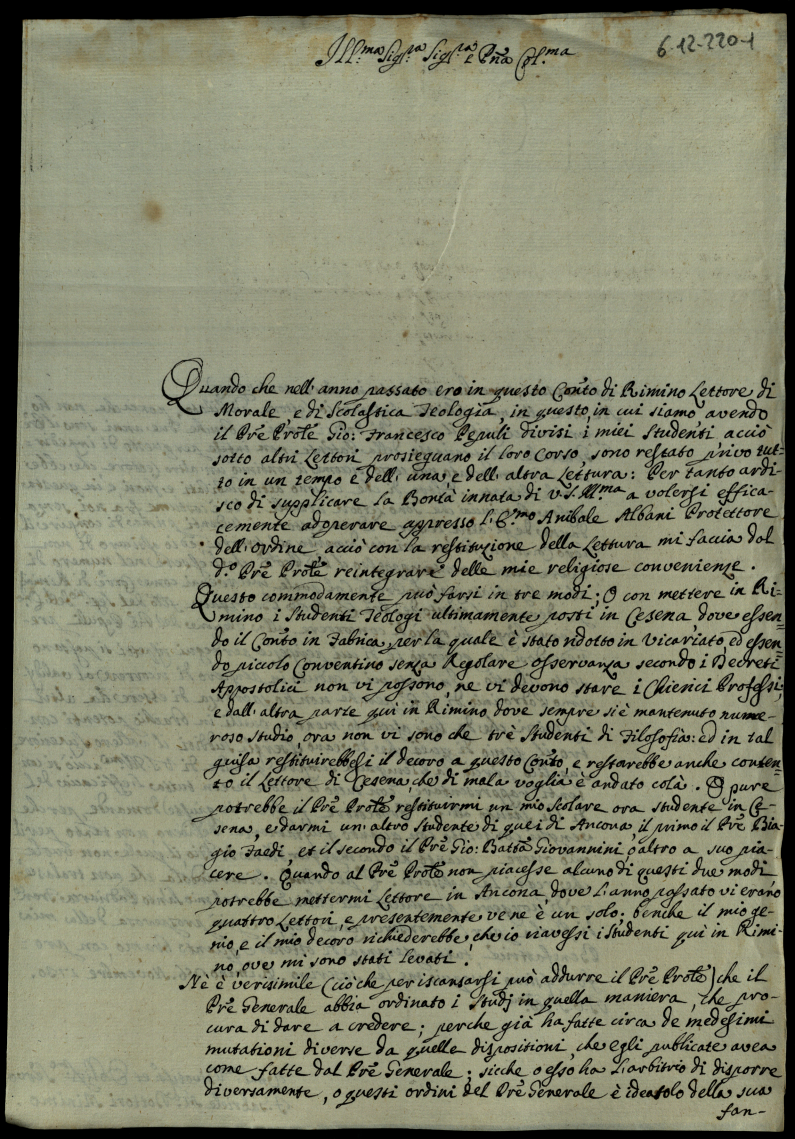 6-12-220-1
Ill.ma Sig.ra Sig.ra e Pñã Col.ma
Quando che nell'anno passato ero in questo Con̄to di Rimino Lettore di
Morale, e di Scolastica Teologia, in questo, in cui siamo avendo
il Prē Prõle Gio: Francesco Pepuli divisi i miei Studenti acciò
sotto altri Lettori prosieguano il loro Corso sono restato privo tut-
to in un tempo e dell'una, e dell'altra Lettura: Per tanto ardi-
sco di supplicare la Bontà innata di V.S. Ill.ma a volersi effica-
cemente adoperare appresso l'E.mo Anibale Albani Protettore
dell'ordine, acciò con la restituzione della Lettura mi faccia dal
d.o Prē Prõle reintegrare delle mie religiose convenienze.
Questo commodamente può farsi in tre modi; O con mettere in Ri-
mino i Studenti Teologi ultimamente posti in Cesena, dove essen-
do il Con̄to in Fabrica, per la quale è stato ridotto in Vicariato, ed essen-
do piccolo Conventino senza Regolare osservanza secondo i Decreti
Appostolici non vi possono, ne vi devono stare i Chierici Professi,
e dall'altra parte qui in Rimino dove sempre si è mantenuto nume-
roso studio, ora non vi sono che trè Studenti di Filosofia: ed in tal
guisa restituirebbesi il decoro a questo Con̄to, e restarebbe anche conten-
to il Lettore di Cesena, che di mala voglia è andato colà. O pure
potrebbe il Prē Prõle restituirmi un mio Scolare ora studente in Ce-
sena, e darmi un'altro Studente di quei di Ancona, il primo il Prē Bia-
gio Faedi, et il secondo il Prē Gio: Battã Giovannini, o altro a suo pia-
cere. Quando al Prē Prõle non piacesse alcuno di questi due modi
potrebbe mettermi Lettore in Ancona, dove l'anno passato vi erano
quattro Lettori, e presentemente ve ne è un solo; benche il mio ge-
nio, e il mio decoro richiederebbe, che io riavessi i Studenti quì in Rimi-
no, ove mi sono stati levati.
Nè è verisimile (ciò che per iscansarsi può addurre il Prē Prõle) che il
Prē Generale abbia ordinato i Studj in quella maniera, che pro-
cura di dare a credere; perche già ha fatte circa de medesimi
mutationi diverse da quelle dispositioni, che egli publicate avea
come fatte dal Prē Generale; sicche o esso ha l'arbitrio di disporre
diversamente, o questi ordini del Prē Generale è ideatolo della sua
fan-